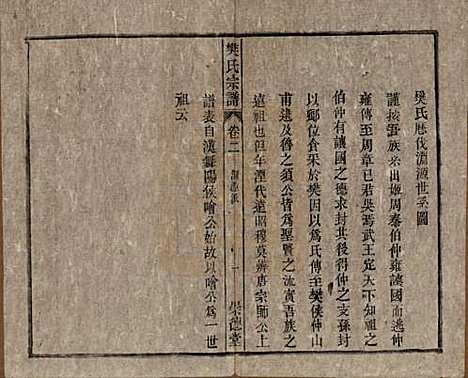 樊氏歷代淵源世系圖
謹按吾族系出姬周泰伯仲雍讓國而逃仲
雍傳至周章已君吳焉武王定天下知祖之
伯仲有讓國之德求封其後得仲之支孫封
以鄉位食采於樊因以爲氏傳至樊侯仲山
甫遲及魯之須公皆爲聖賢之流寅吾族之
遠祖也但年湮代遠昭穆莫辨唐宗師公上
譜表自漢舞陽侯噲公始故以噲公爲一世
祖云
樊氏宗譜
卷二
一
崇德堂